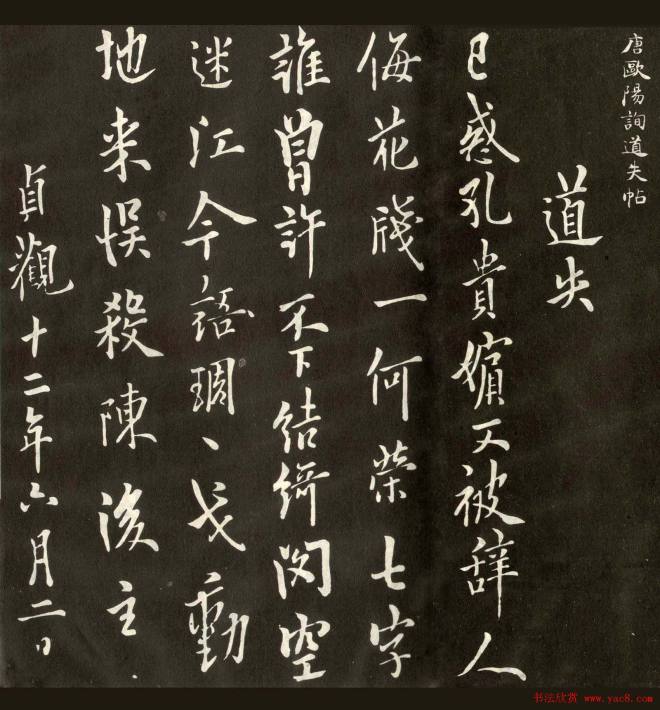 唐歐陽詢道失帖
道失
已惑孔貴嬪又被辞人
侮花牋一何榮七字
誰曾許不下結綺閣空
迷江令語琱、戈動
地来悮殺陳後主
貞觀十二年六月二日
书法欣赏 www.yac8.com